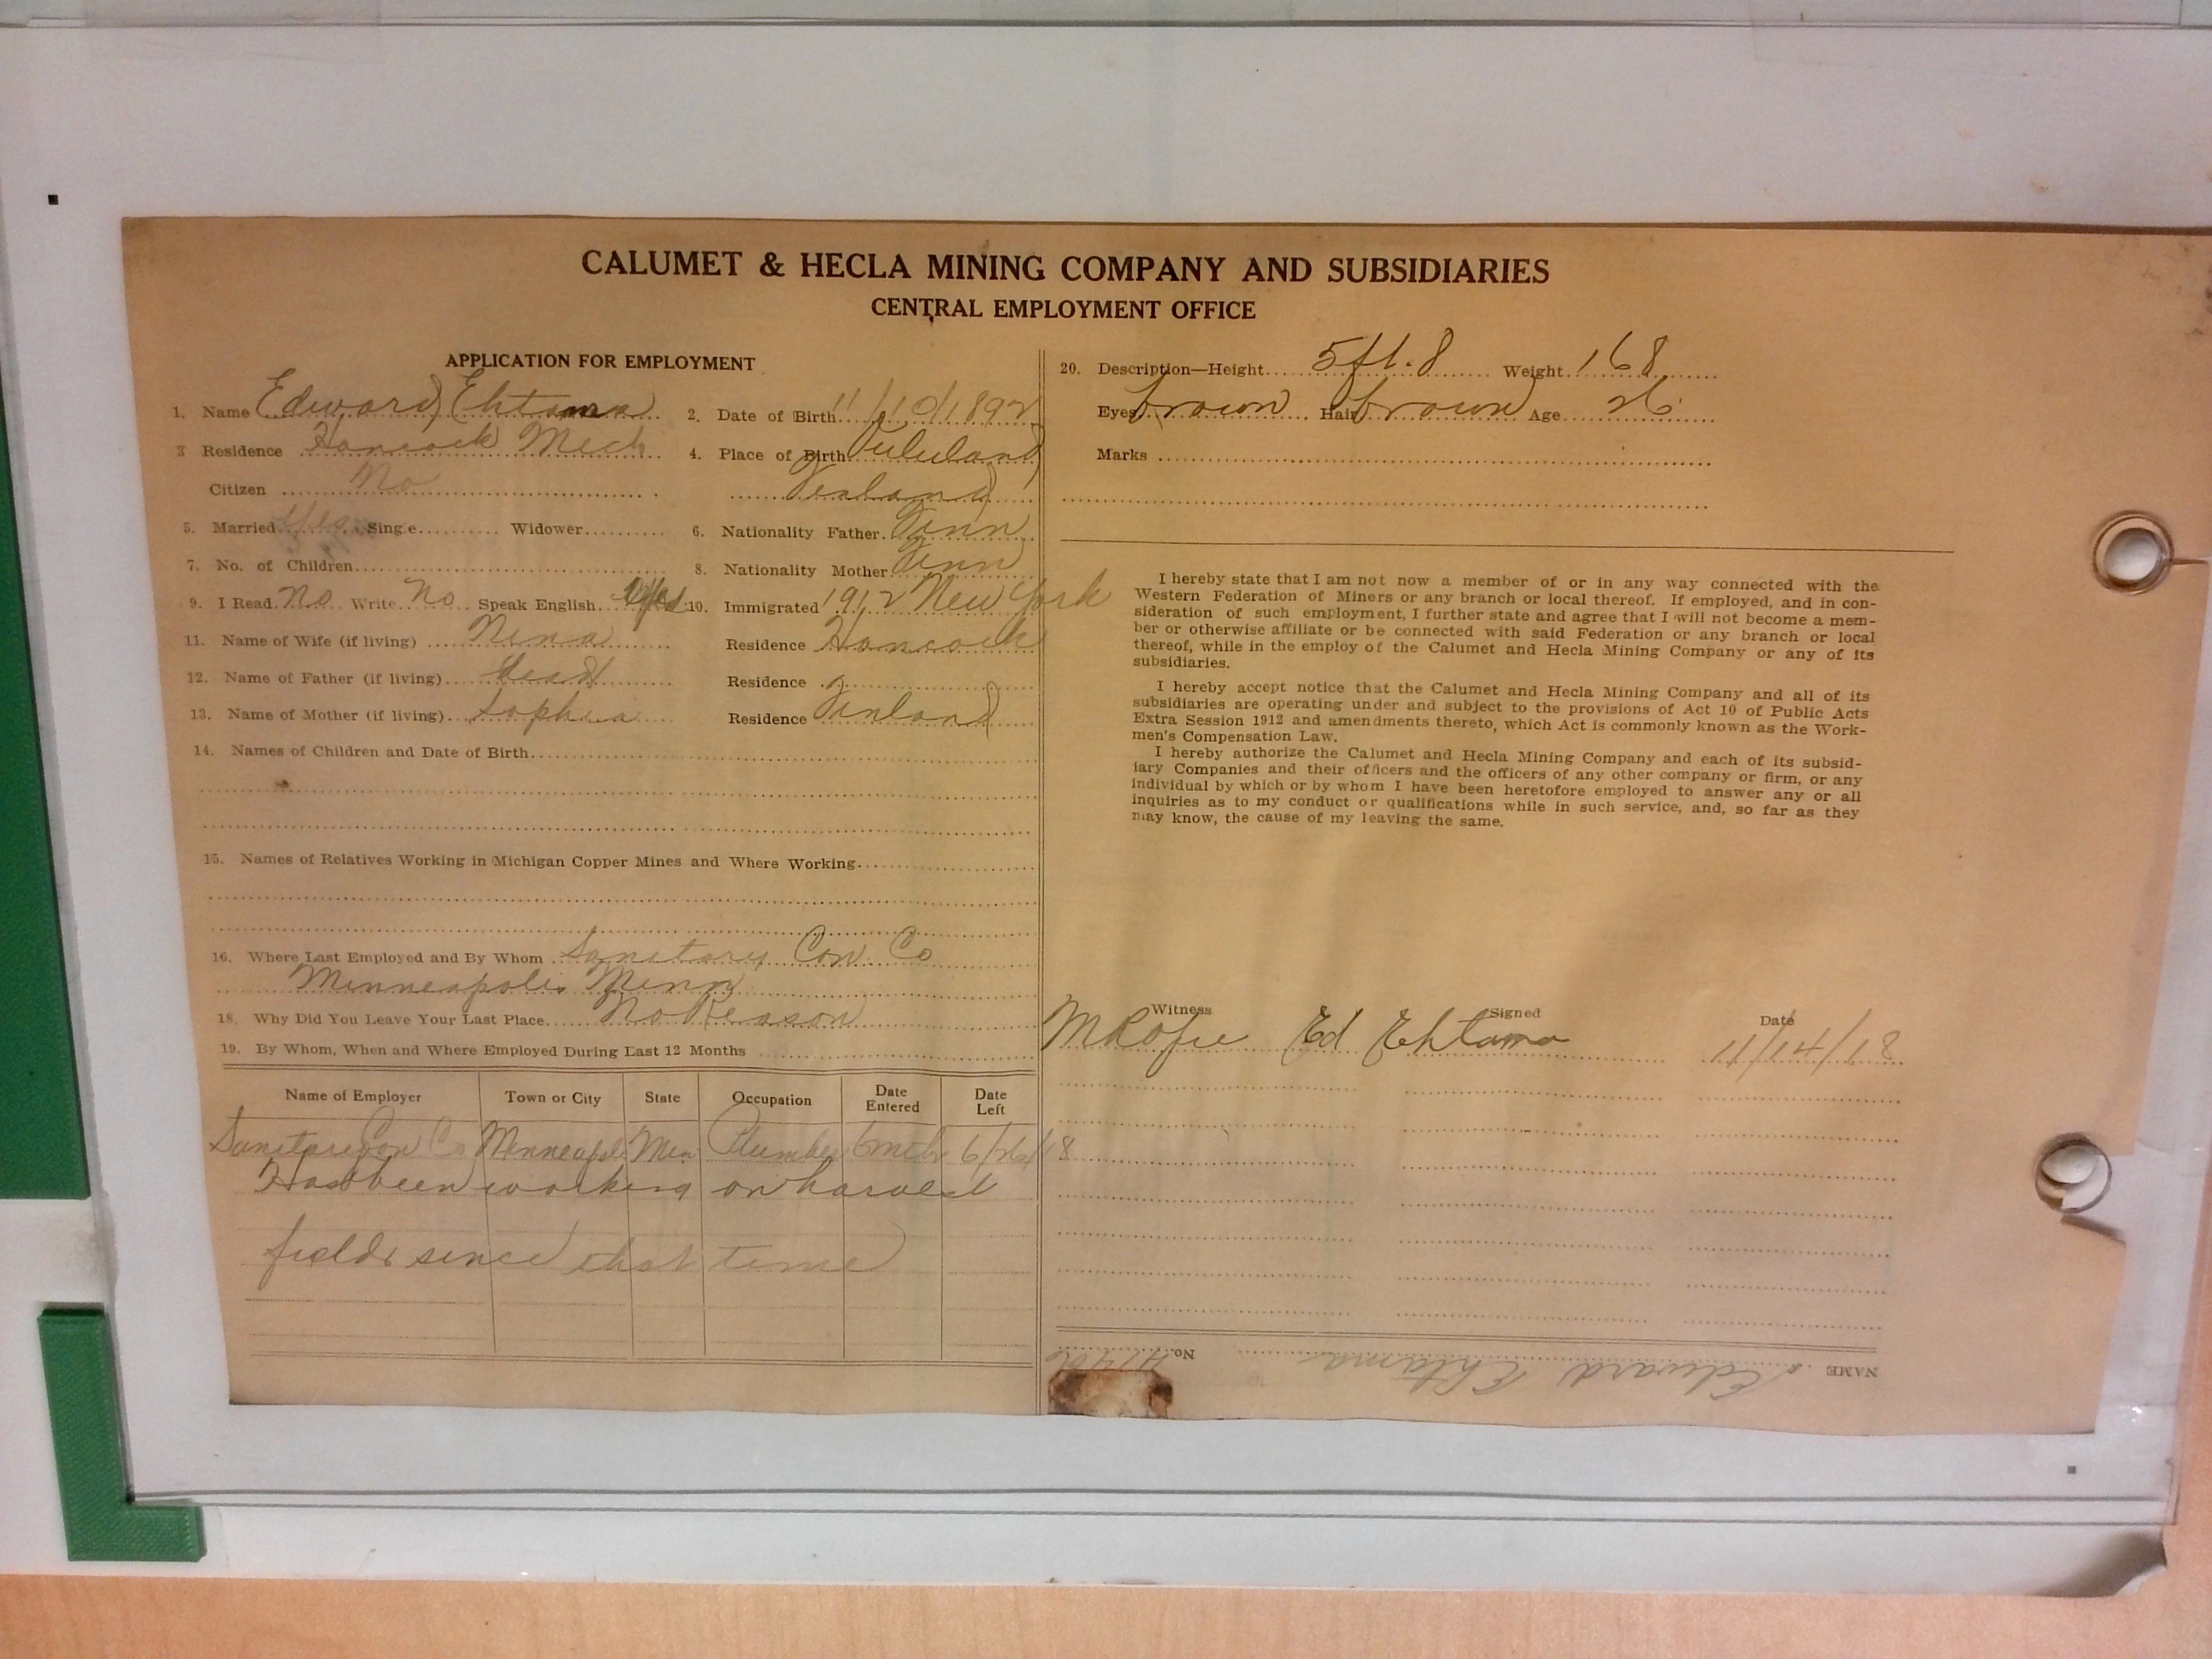 CALUMET & HECLA MINING COMPANY AND SUBSIDIARIES
CENTRAL EMPLOYMENT OFFICE
APPLICATION FOR EMPLOYMENT
1. Name Edward Ehtama 2. Date of Birth 11/10/1892
3 Residence Hancock Mich 4. Place of Birth
Citizen No Finland
5. Married Yes Single Widower 6. Nationality Father Finn
7. No. of Children 8. Nationality Mother Finn
9. I Read No Write No Speak English Yes 10. Immigrated 1912 New York
11. Name of Wife (if living) Nina Residence Hancock
12. Name of Father (if living) dead Residence
13. Name of Mother (if living) Sophia Residence Finland
14. Names of Children and Date of Birth
15. Names of Relatives Working in Michigan Copper Mines and Where Working
16. Where Last Employed and By Whom Sanitary Con Co
Minneapolis Minn
18. Why Did You Leave Your Last Place No Reason
19. By Whom, When and Where Employed During Last 12 Months
Name of Employer Town or City State Occupation Date Entered Date Left
Sanitary Con Co Minneapolis Min Plumber 6 mths 6/26/18
Has been working on harvest
fields since that time
20. Description—Height 5 ft. 8 Weight 168
Eyes brown Hair brown Age 26
Marks
I hereby state that I am not now a member of or in any way connected with the
Western Federation of Miners or any branch or local thereof. If employed, and in con-
sideration of such employment, I further state and agree that I will not become a mem-
ber or otherwise affiliate or be connected with said Federation or any branch or local
thereof, while in the employ of the Calumet and Hecla Mining Company or any of its
subsidiaries.
I hereby accept notice that the Calumet and Hecla Mining Company and all of its
subsidiaries are operating under and subject to the provisions of Act 10 of Public Acts
Extra Session 1912 and amendments thereto, which Act is commonly known as the Work-
men's Compensation Law.
I hereby authorize the Calumet and Hecla Mining Company and each of its subsid-
iary Companies and their officers and the officers of any other company or firm, or any
individual by which or by whom I have been heretofore employed to answer any or all
inquiries as to my conduct or qualifications while in such service, and, so far as they
may know, the cause of my leaving the same.
Witness Signed Date
Ed Ehtama 11/14/18
NAME Edward Ehtama No.